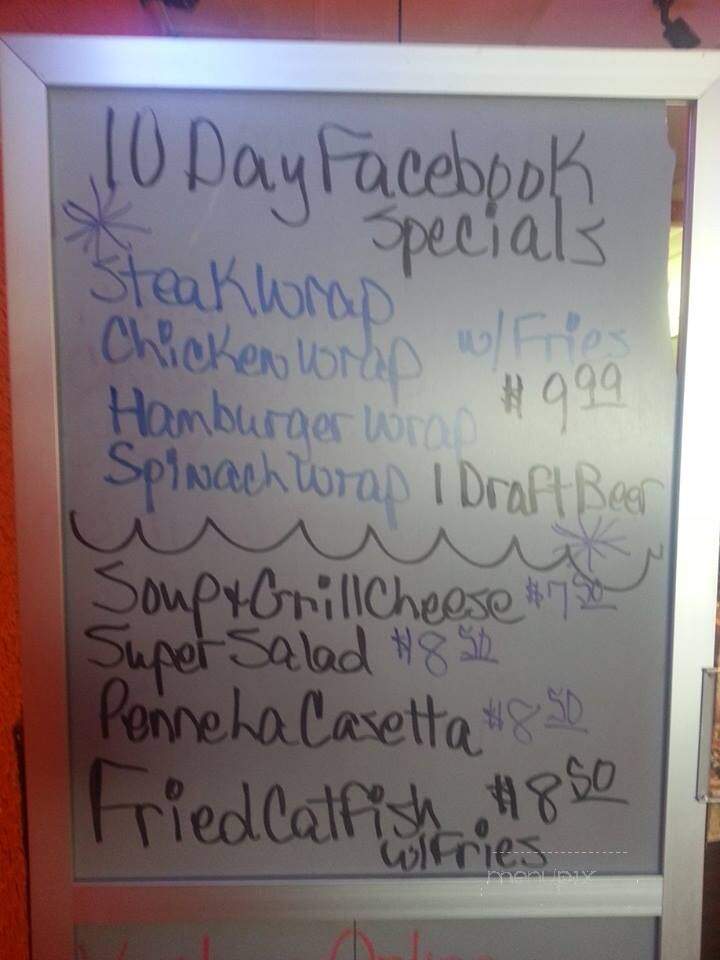 10 Day Facebook
Specials
Steak Wrap
Chicken Wrap w/ Fries
Hamburger Wrap $9.99
Spinach Wrap 1 Draft Beer
Soup + Grill Cheese $7.50
Super Salad $8.50
Penne La Casetta $8.50
Fried Catfish $8.50
w/ Fries
menupix
Online